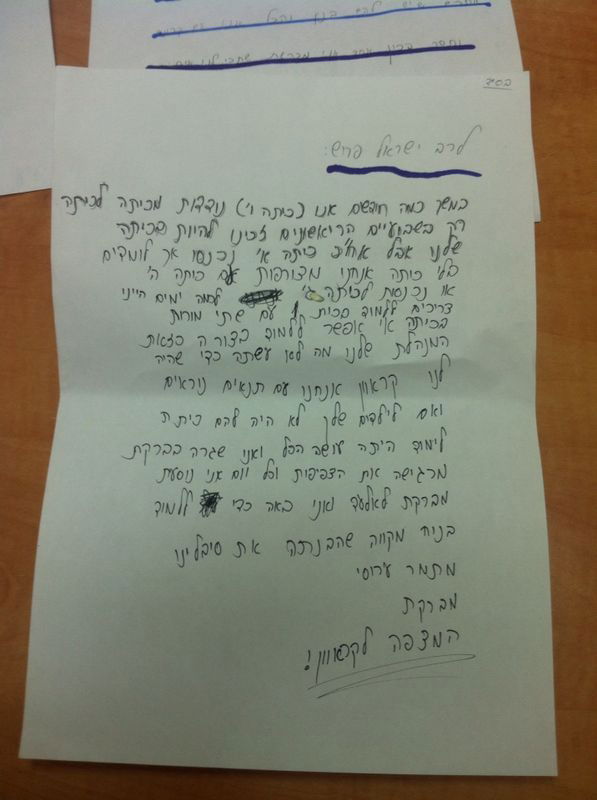 בס״ד
לרב ישראל פרוש:
במשך כמה חודשים אנו (כיתה ו') נודדות מכיתה לכיתה
רק בשבועיים הריאשונים זכינו להיות בכיתה
שלנו אבל אח"כ כיתה א' נכנסו אך לומדים
בלי כיתה אנחנו מצורפות עם כיתה ה'
או נכנסות לכיתה ג' לכמה ימים היינו
צריכים ללמוד בכית עם שתי מורות
בכיתה אי אפשר ללמוד בצורה כזאת
המנהלת שלנו מה לא עשתה כדי שהיה
לנו קראון אנחנו עם תנאים נוראים
ואם לילדים שלך לא היה להם כיתת
לימוד היתה עושה הכל ואני שגרה בברקת
מרגישה את הצפיפות וכל יום אני נוסעת
מברקת לאלעד ואני באה כדי ללמוד
בניח מקווה שהבנתה את סיבלינו
מתמר ערוסי
מברקת
המצפה לקראוון!